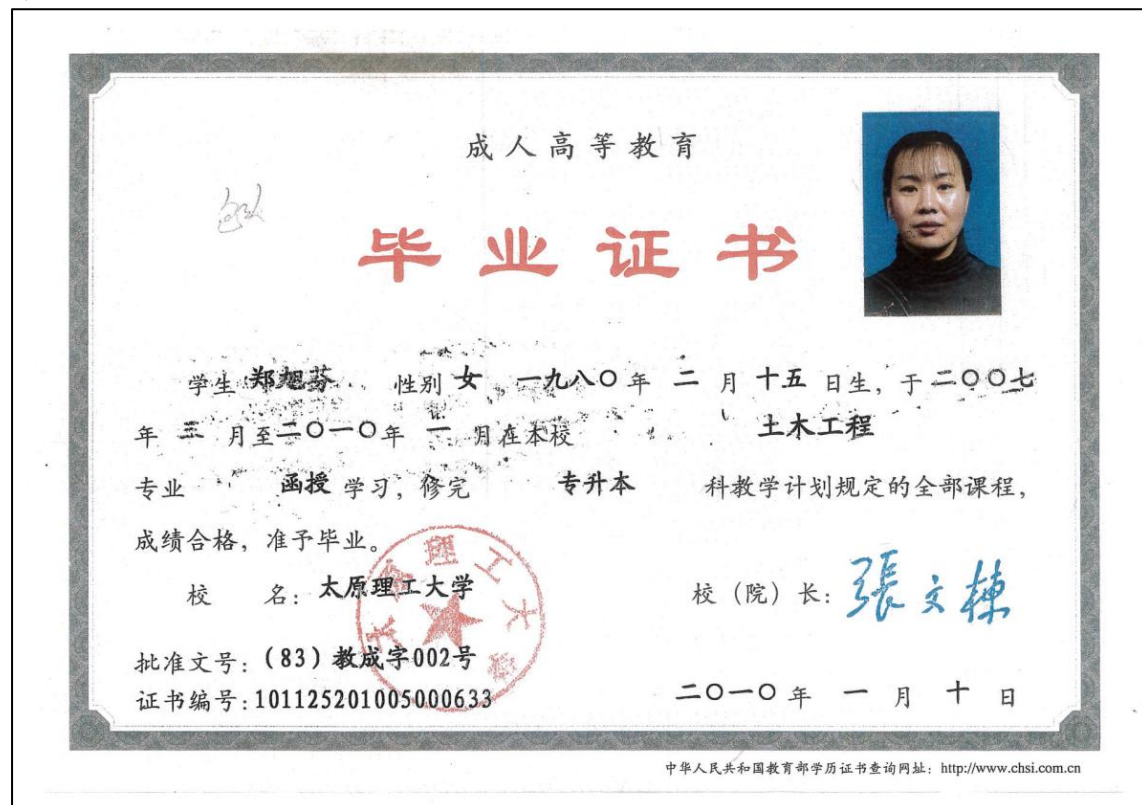 成人高等教育
毕业证书
学生 郑旭芬 性别 女 一九八〇 年 二 月 十五 日生，于 二〇〇七
年 三 月至 二〇一〇 年 一 月在本校 土木工程
专业 函授 学习，修完 专升本 科教学计划规定的全部课程，
成绩合格，准予毕业。
校 名：太原理工大学
校（院）长：張文棟
批准文号：（83）教成字002号
证书编号：101125201005000633
二〇一〇 年 一 月 十 日
中华人民共和国教育部学历证书查询网址：http://www.chsi.com.cn